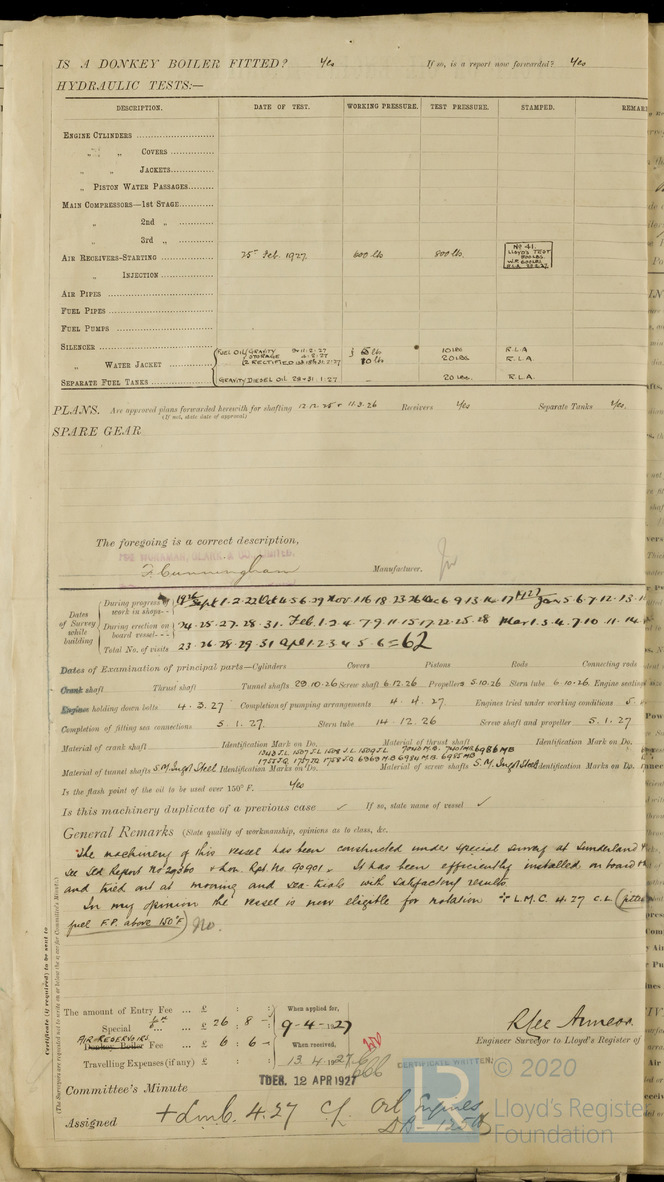 IS A DONKEY BOILER FITTED? Yes If so, is a report now forwarded? Yes
HYDRAULIC TESTS:—
DESCRIPTION. DATE OF TEST. WORKING PRESSURE. TEST PRESSURE. STAMPED. REMAR
ENGINE CYLINDERS
„ „ COVERS
„ „ JACKETS
„ PISTON WATER PASSAGES
MAIN COMPRESSORS—1st STAGE
„ 2nd „
„ 3rd „
AIR RECEIVERS-STARTING 25th Feb. 1927 600 lbs 800 lbs. No 41. LLOYD'S TEST 800 LBS W.P. 600 LBS R.L.A. 25.2.27
„ INJECTION
AIR PIPES
FUEL PIPES
FUEL PUMPS
SILENCER FUEL OIL/GRAVITY 10 lbs R.L.A.
„ WATER JACKET 20 lbs. R.L.A.
SEPARATE FUEL TANKS GRAVITY DIESEL OIL 28-31.1.27 – 20 lbs. R.L.A.
PLANS. Are approved plans forwarded herewith for shafting 12.12.25 + 11.3.26 Receivers Yes Separate Tanks Yes.
(If not, state date of approval)
SPARE GEAR
The foregoing is a correct description,
FOR WORKMAN, CLARK & CO. LIMITED.
F. Cunningham Manufacturer.
Dates of Survey while building
During progress of work in shops-- 1926 Sept 1.2.22 Oct 4.5.6.29 Nov. 1.16.18 23.26 Dec 6.9.13.14.17 1927 Jan 5.6.7.12.13.1
During erection on board vessel--- 24.25.27.28.31. Feb. 1.2.4.7.9.11.15.17.22.25.28 Mar 1.3.4.7.10.11.14
Total No. of visits 23.26.28.29.31 Apl 1.2.3.4.5.6 = 62
Dates of Examination of principal parts—Cylinders Covers Pistons Rods Connecting rods
Crank shaft Thrust shaft Tunnel shafts 29.10.26 Screw shaft 6.12.26 Propellers 5.10.26 Stern tube 6.10.26 Engine seatings
Engines holding down bolts 4.3.27 Completion of pumping arrangements 4.4.27. Engines tried under working conditions 5.
Completion of fitting sea connections 5.1.27. Stern tube 14.12.26 Screw shaft and propeller 5.1.27
Material of crank shaft Identification Mark on Do. Material of thrust shaft Identification Mark on Do.
Material of tunnel shafts S.M. Ingot Steel Identification Marks on Do. Material of screw shafts S.M. Ingot Steel Identification Marks on Do.
Is the flash point of the oil to be used over 150° F. Yes
Is this machinery duplicate of a previous case ✓ If so, state name of vessel ✓
General Remarks (State quality of workmanship, opinions as to class, &c.
The machinery of this vessel has been constructed under special survey at Sunderland
see Sld Report No 29360 + Lon. Rpt. No. 90901. It has been efficiently installed on board
and tried out at mooring and sea-trials with satisfactory results
In my opinion the vessel is now eligible for notation + L.M.C. 4.27 C.L (fitted
fuel F.P. above 150°F) No.
Certificate (if required) to be sent to
(The Surveyors are requested not to write on or below the space for Committee's Minute.)
The amount of Entry Fee ... £ : : When applied for,
Special ... £ 26 : 8 – 9-4-1927
AIR RESERVOIRS
Donkey Boiler Fee ... £ 6 : 6 – When received,
Travelling Expenses (if any) £ : : 13.4.1927
Engineer Surveyor to Lloyd's Register of
CERTIFICATE WRITTEN.
Committee's Minute TUES. 12 APR 1927
Assigned + LMC 4.27 CL Oil Engines
DB – 125 lb
© 2020
LR
Lloyd's Register
Foundation